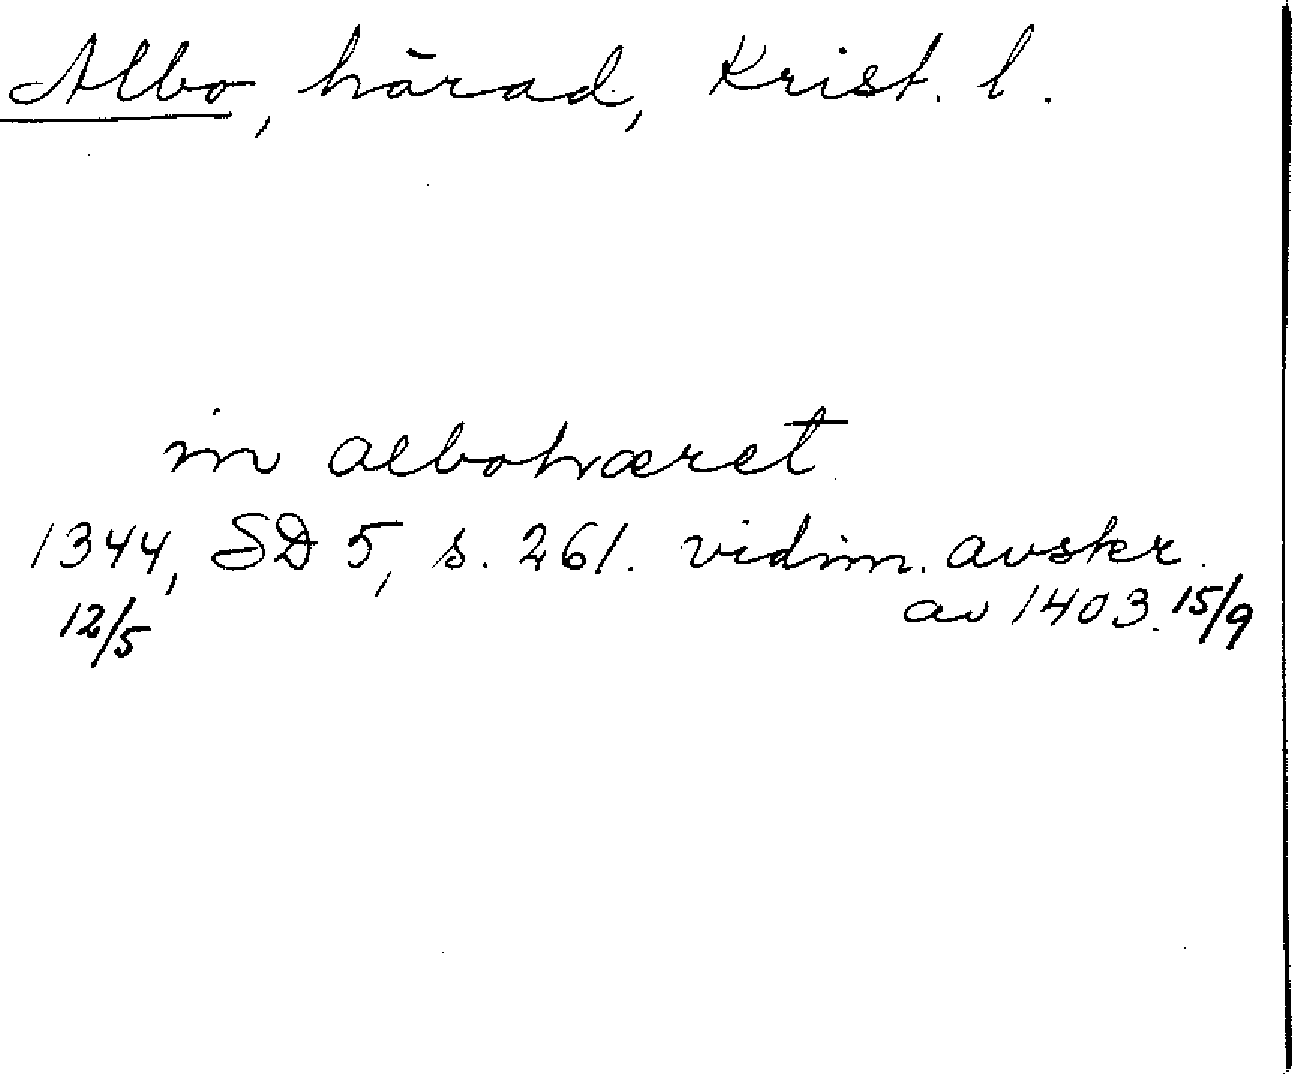 Albo, härad, Krist. l.
in albohæret
1344, SD 5, s. 261. vidim. avskr.
12/5 av 1403. 15/9